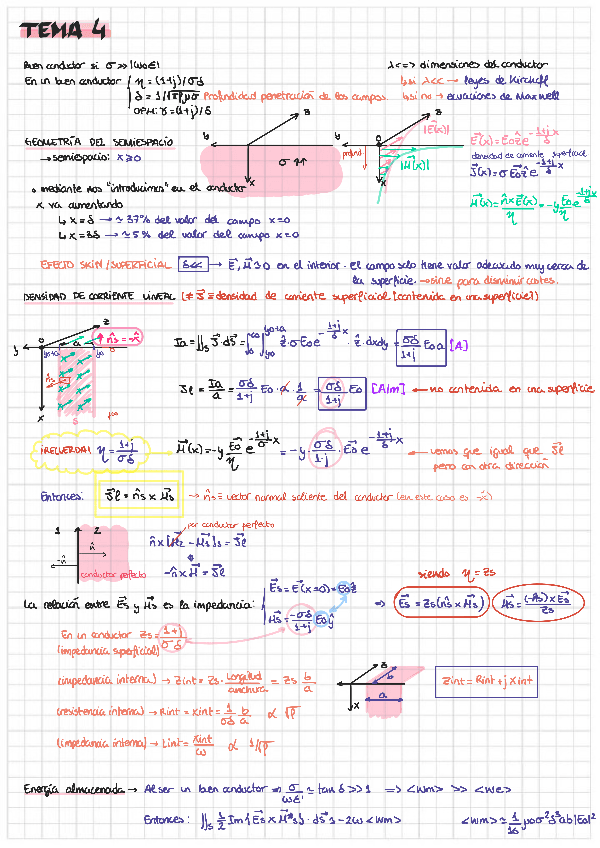 TEMA 4
Buen conductor si σ >> |ωε|
En un buen conductor
η = (1+j)/σδ
δ = 1/√πfμσ Profundidad penetración de los campos.
OPH: γ = (1+j)/δ
λ<=> dimensiones del conductor
↳ si λ<< → leyes de Kirchoff
↳ si no → ecuaciones de Maxwell
GEOMETRÍA DEL SEMIESPACIO
→ semiespacio: x≥0
mediante nos "introducimos" en el conductor
x va aumentando
↳ x=δ → ≃ 37% del valor del campo x=0
↳ x=3δ → ≃ 5% del valor del campo x=0
y z σ ↑↑ x
y z 0 |E(x)| profund. |H(x)| x
E(x) = E₀ẑe^(-(1+j)/δ x)
densidad de corriente superficial
J(x) = σE₀ẑe^(-(1+j)/δ x)
H(x) = n̂×E(x)/η = -ŷ E₀/η e^(-(1+j)/δ x)
EFECTO SKIN/SUPERFICIAL δ<< → E, H ≃ 0 en el interior. El campo solo tiene valor adecuado muy cerca de
la superficie. → sirve para disminuir costes.
DENSIDAD DE CORRIENTE LINEAL [≠ J ≡ densidad de corriente superficial [contenida en una superficie]]
y 0 z a n̂s = -x̂ y₀+a y₀ n̂s x δ
Ia = ∬s J·ds = ∫∫ ẑ·σE₀e^(-(1+j)/δ x) · ẑ·dxdy = σδ/(1+j) E₀a [A]
Jl = Ia/a = σδ/(1+j) E₀·a·1/a = σδ/(1+j) E₀ [A/m] ← no contenida en una superficie
¡RECUERDA! η = (1+j)/σδ
H(x) = -y E₀/η e^(-(1+j)/δ x) = -y · σδ/(1+j) · E₀ e^(-(1+j)/δ x) ← vemos que igual que Jl
pero con otra dirección
Entonces: Jl = n̂s × Hs → n̂s ≡ vector normal saliente del conductor (en este caso es -x̂)
1 2 n̂ -n̂ conductor perfecto
por conductor perfecto
n̂×[H₂ - H₁]s = Jl
-n̂×H = Jl
siendo η = Zs
La relación entre Es y Hs es la impedancia:
Es = E(x=0) = E₀ẑ
Hs = -σδ/(1+j) E₀ŷ
⇒ Es = Zs(n̂s×Hs) Hs = (-n̂s)×Es/Zs
En un conductor Zs = (1+j)/σδ
(impedancia superficial)
(impedancia interna) → Zint = Zs · longitud/anchura = Zs b/a
z b a x
Zint = Rint + jXint
(resistencia interna) → Rint = Xint = 1/σδ b/a ∝ √f
(impedancia interna) → Lint = Xint/ω ∝ 1/√f
Energía almacenada → Al ser un buen conductor ⇒ σ/ωε' ≃ tan δ >> 1 => <wm> >> <we>
Entonces: ∬s 1/2 Im{Es × H*s}·ds ≃ -2ω <wm> <wm> ≃ 1/16 μσ²δ³ab|E₀|²